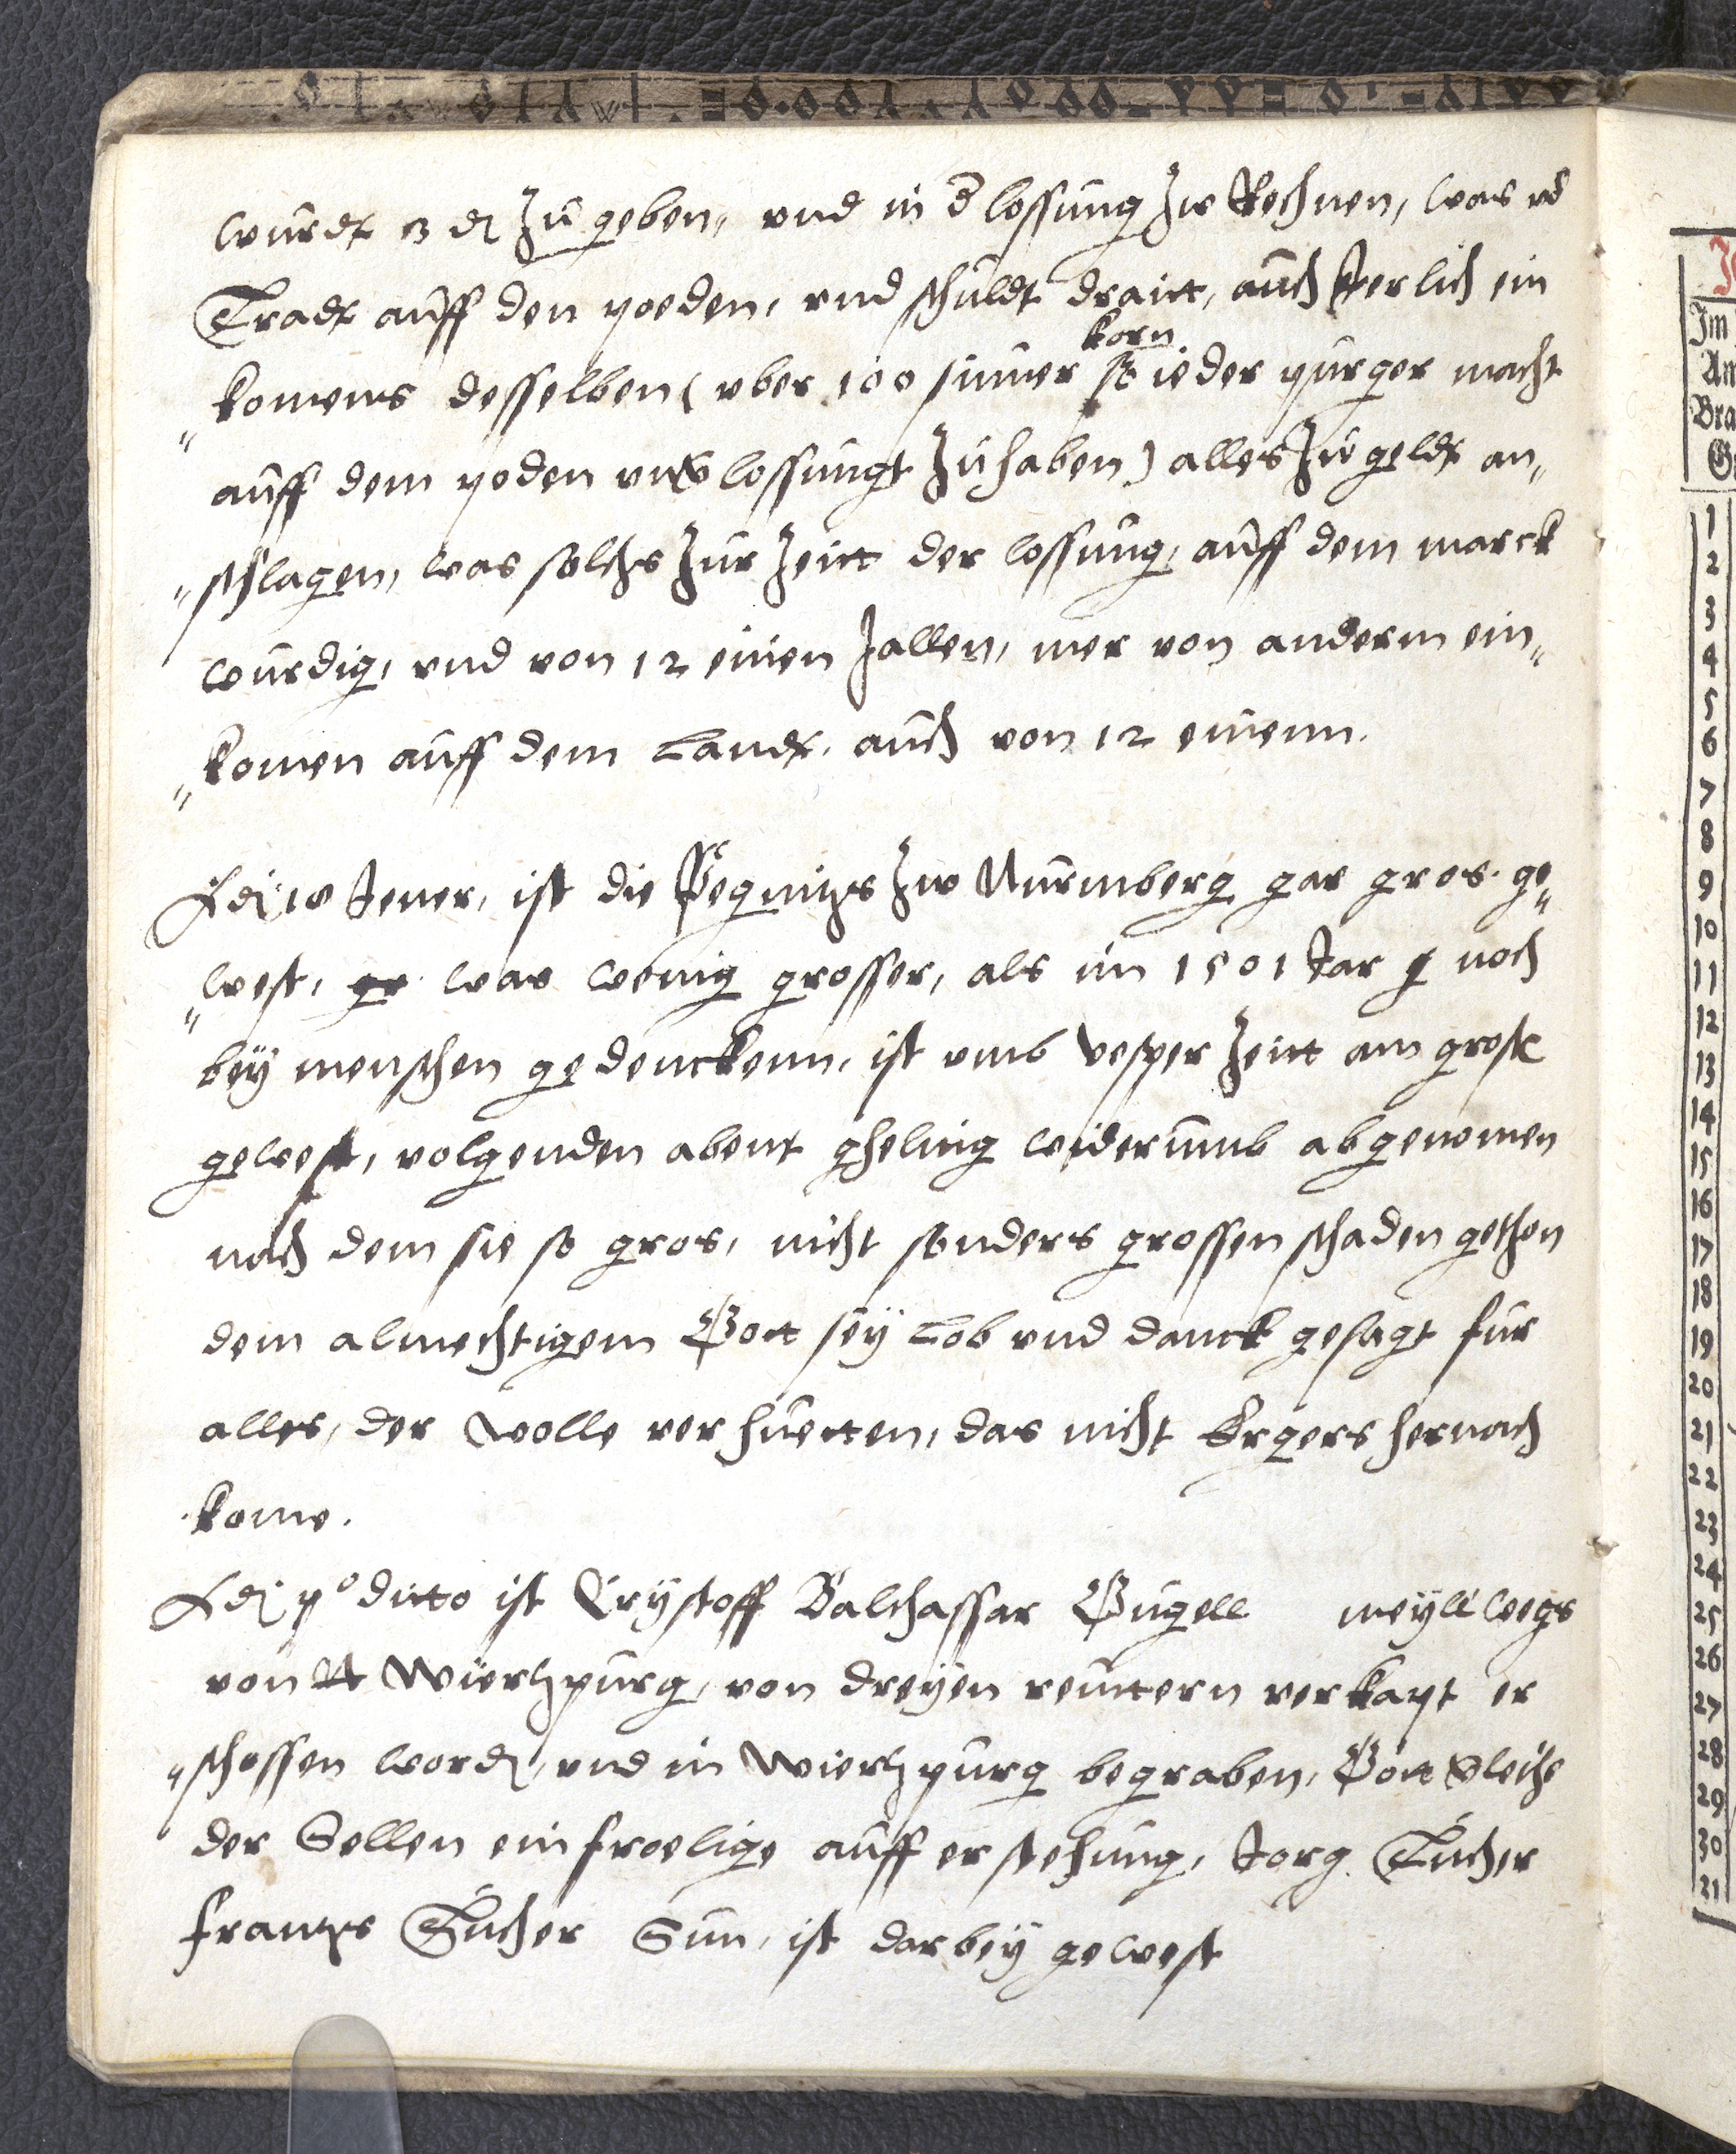 wurdt 3 ₰ zu geben, vnd in d lossung zw Rechnen, was vo
Tradt auff den poeden, vnd schuldt draitt, auch Jerlich ein
"komens desselben (vber 100 simer korn so ieder purger macht
auff dem poden vnuerlossungt zu haben) alles zu geldt an"
"schlagen, was solchs zur zeitt der lossung, auff dem marck
wurdig, vnd von 12 einen zallen, mer von anderm ein"
"komen auff dem Landt, auch von 12 einenn.
Adi 10 Jener, ist die Pegnitzs zw Nurmberg gar gros ge"
"west, was wenig grosser, als im 1501 Jar noch
bey menschen gedenckenn, ist vmb vesper zeitt am grost
gewest, volgenden abent gheling widerumb abgenomen
nach dem sie so gros, nicht sonders grossen schaden gethon
dem almechtigem Gott sey Lob vnd danck gesagt fur
alles, der wolle verhuetten, das nicht Ergers hernach
kome.
Adi po ditto ist Crystoff Balthassar Gugell meyll wegs
von Wiertzpurg, von dreyen reuttern verkapt er
"schossen word, vnd in Wiertzpurg begraben, Gott verleihe
der Sellen ein froelige aufferstehung, Jorg Tucher
frantzs Tucher Sun, ist darbey gewest
Im
Am
Bra
1
2
3
4
5
6
7
8
9
10
11
12
13
14
15
16
17
18
19
20
21
22
23
24
25
26
27
28
29
30